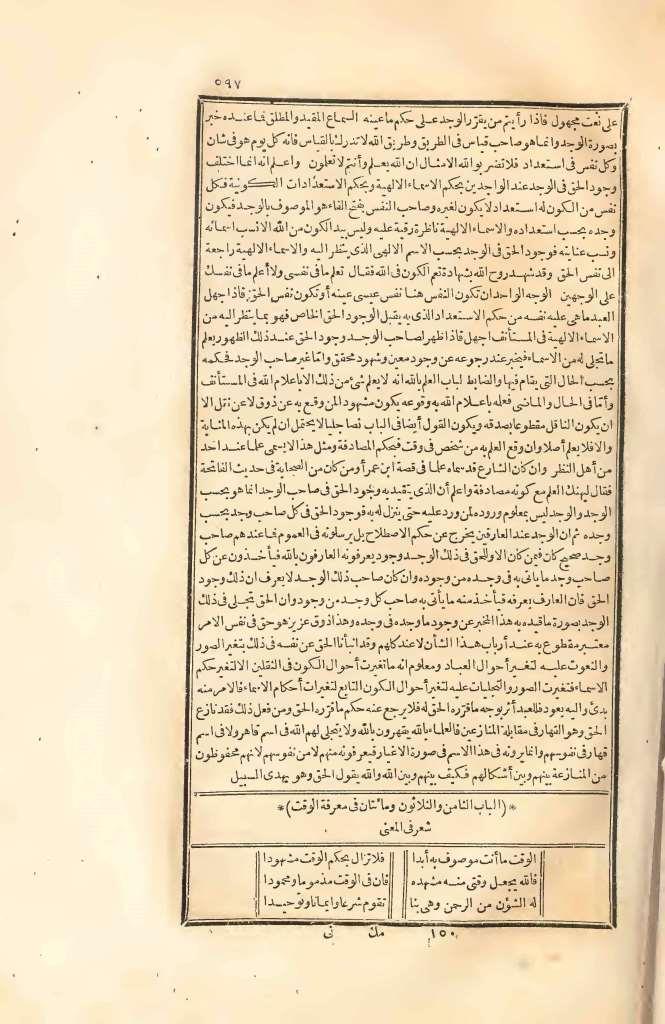 ٥٩٧
على نعت مجهول فاذا رأيتم من يقرر الوجد على حكم ما عينه السماع المقيد والمطلق فما عنده خبر
بصورة الوجد وانما هو صاحب قياس فى الطريق وطريق الله لا تدرك بالقياس فانه كل يوم هو فى شان
وكل نفس فى استعداد فلا تضربوا لله الامثال ان الله يعلم وأنتم لا تعلمون واعلم انه انما اختلف
وجود الحق فى الوجد عند الواجدين بحكم الاسماء الالهية وبحكم الاستعدادات الكونية فكل
نفس من الكون له استعداد لا يكون لغيره وصاحب النفس بفتح الفاء هو الموصوف بالوجد فيكون
وجده بحسب استعداده والاسماء الالهية ناظرة رقيبة عليه وليس بيد الكون من الله الا نسب اسمائه
ونسب عنايته فوجود الحق فى الوجد بحسب الاسم الالهى الذى ينظر اليه والاسماء الالهية راجعة
الى نفس الحق وقد شهد روح الله بشهادة تعم الكون فى الله فقال تعلم ما فى نفسى ولا أعلم ما فى نفسك
على الوجهين الوجه الواحد ان تكون النفس هنا نفس عيسى عينه أو تكون نفس الحق فاذا جهل
العبد ما هى عليه نفسه من حكم الاستعداد الذى به يقبل الوجود الحق الخاص فهو بما ينظر اليه من
الاسماء الالهية فى المستأنف اجهل فاذا ظهر لصاحب الوجد وجود الحق عند ذلك الظهور يعلم
ما تجلى له من الاسماء فيخبر عند رجوعه عن وجود معين وشهود محقق وأما غير صاحب الوجد فحكمه
بحسب الحال التى يقام فيها والضابط لباب العلم بالله انه لا يعلم شئ من ذلك الا باعلام الله فى المستأنف
وأما فى الحال والماضى فعله باعلام الله به وقوعه يكون مشهودا لمن وقع به عن ذوق لا عن نقل الا
ان يكون الناقل مقطوعا بصدقه ويكون القول أيضا فى الباب نصا جليا لا يحتمل ان لم يكن بهذه المثابة
والا فلا يعلم أصلا وان وقع العلم به من شخص فى وقت فبحكم المصادفة ومثل هذا لا يسمى علما عند احد
من أهل النظر وان كان الشارع قد سماه علما فى قصة ابن عمر أو من كان من الصحابة فى حديث الفاتحة
فقال ليهنك العلم مع كونه مصادفة واعلم أن الذى يتقيد به وجود الحق فى صاحب الوجد انما هو بحسب
الوجد والوجد ليس بمعلوم وروده لمن ورد عليه حتى ينزل له به فوجود الحق فى كل صاحب وجد بحسب
وجده ثم ان الوجد عند العارفين يخرج عن حكم الاصطلاح بل يرسلونه فى العموم فما عندهم صاحب
وجد صحيح كان فيمن كان الا وللحق فى ذلك الوجد وجود يعرفونه العارفون بالله فيأخذون عن كل
صاحب وجد ما يأتى به فى وجده من وجوده وان كان صاحب ذلك الوجد لا يعرف ان ذلك وجود
الحق فان العارف يعرفه فيأخذ منه ما يأتى به صاحب كل وجد من وجود وان الحق يتجلى فى ذلك
الوجد بصورة ما قيده به هذا المخبر عن وجود ما وجده فى وجده وهذا ذوق عزيز هو حق فى نفس الامر
معتبر مقطوع به عند أرباب هذا الشأن لا عند كلهم وقد انبأنا الحق عن نفسه فى ذلك بتغير الصور
والنعوت عليه لتغير أحوال العباد ومعلوم انه ما تغيرت أحوال الكون فى الثقلين الا لتغير حكم
الاسماء فتغيرت الصور والتجليات عليه لتغير أحوال الكون التابع لتغيرات أحكام الاسماء فالامر منه
بدئ واليه يعود فللعبد أثر بوجه ما قرره الحق له فلا يرجع عنه حكم ما قرره الحق ومن فعل ذلك فقد نازع
الحق وهو القهار فى مقابلة المنازعين فالعلماء بالله يقهرون بالله ولا يتجلى لهم الله فى اسم قاهر ولا فى اسم
قهار فى نفوسهم وانما يرونه فى هذا الاسم فى صورة الاغيار فيعرفونه منهم لا من نفوسهم لانهم محفوظون
من المنازعة بينهم وبين أشكالهم فكيف بينهم وبين الله والله يقول الحق وهو يهدى السبيل
*(الباب الثامن والثلاثون ومائتان فى معرفة الوقت)*
شعر فى المعنى
الوقت ما أنت موصوف به أبدا فلا تزال بحكم الوقت مشهودا
فالله يجعل وقتى منه مشهده فان فى الوقت مذموما ومحمودا
له الشؤن من الرحمن وهى بنا تقوم شرعا وايمانا وتوحيدا
١٥٠ مك نى